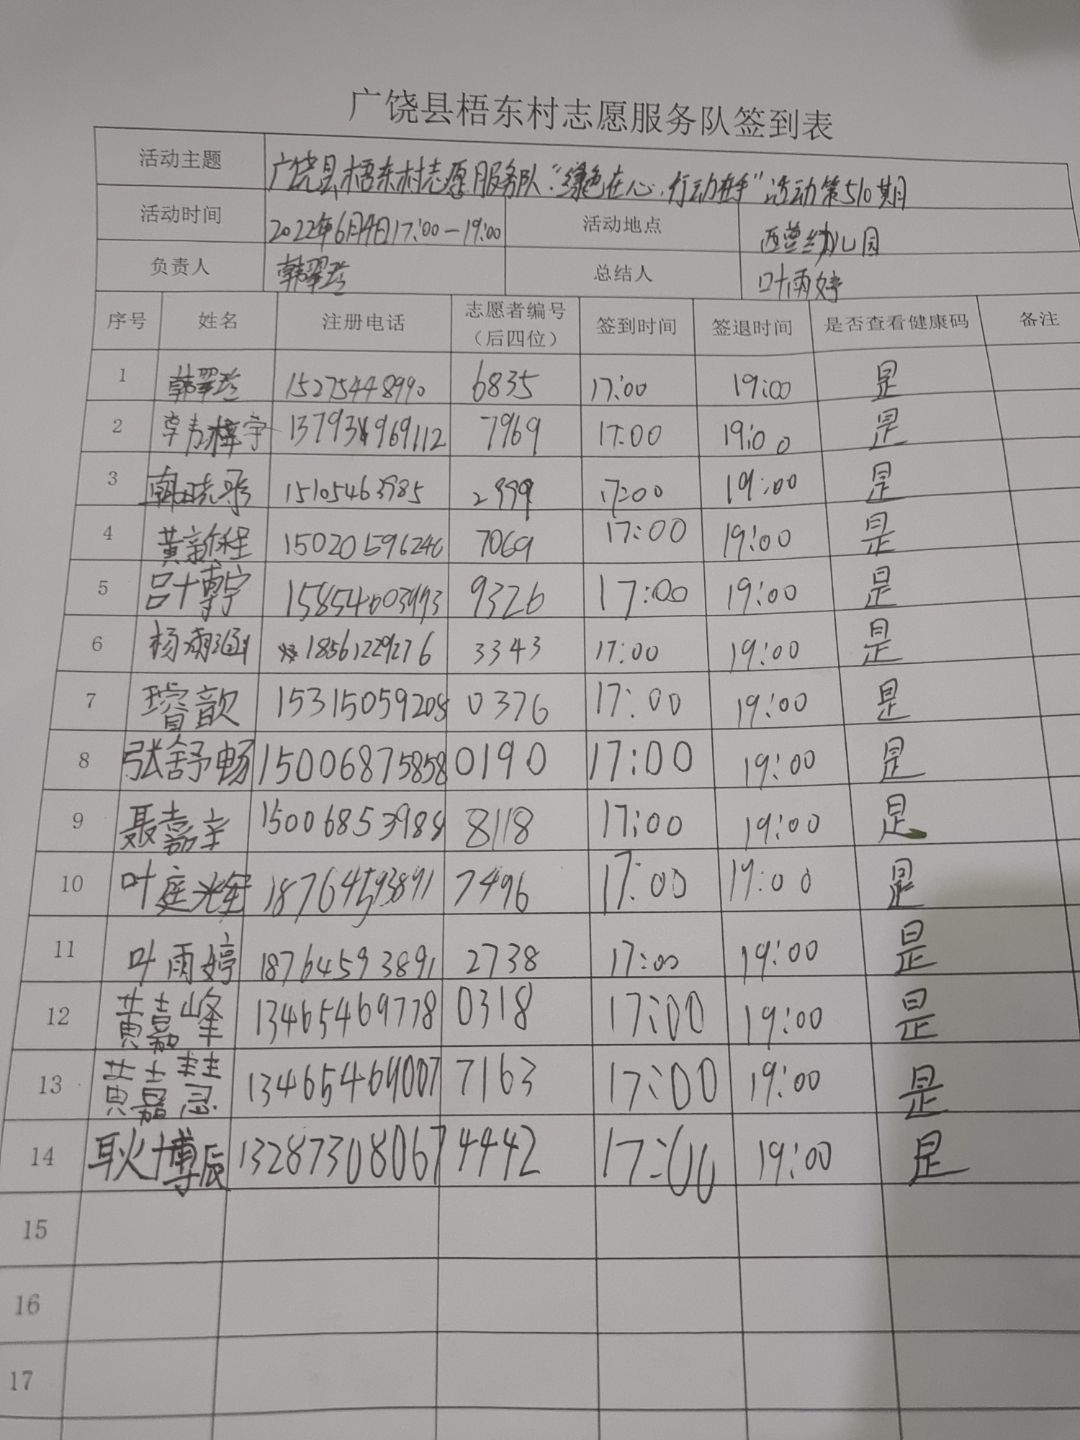 广饶县梧东村志愿服务队签到表
活动主题 广饶县梧东村志愿服务队:“绿色在心.行动在手”活动第510期
活动时间 2022年6月4日17:00-19:00 活动地点 西营幼儿园
负责人 韩翠 总结人 叶雨婷
序号 姓名 注册电话 志愿者编号（后四位） 签到时间 签退时间 是否查看健康码 备注
1 韩翠 15275448990 6835 17:00 19:00 是
2 7969 17:00 19:00 是
3 晓彤 15105463985 2999 17:00 19:00 是
4 黄新程 15020596246 7069 17:00 19:00 是
5 吕博宇 9326 17:00 19:00 是
6 杨涵 18561229276 3343 17:00 19:00 是
7 睿歆 15315059208 0376 17:00 19:00 是
8 张舒畅 15006875858 0190 17:00 19:00 是
9 聂嘉 15006853988 8118 17:00 19:00 是
10 叶庭 18764593891 7496 17:00 19:00 是
11 叶雨婷 18764593891 2738 17:00 19:00 是
12 黄嘉峰 13465469778 0318 17:00 19:00 是
13 黄嘉 7163 17:00 19:00 是
14 耿博辰 13287308067 4442 17:00 19:00 是
15
16
17